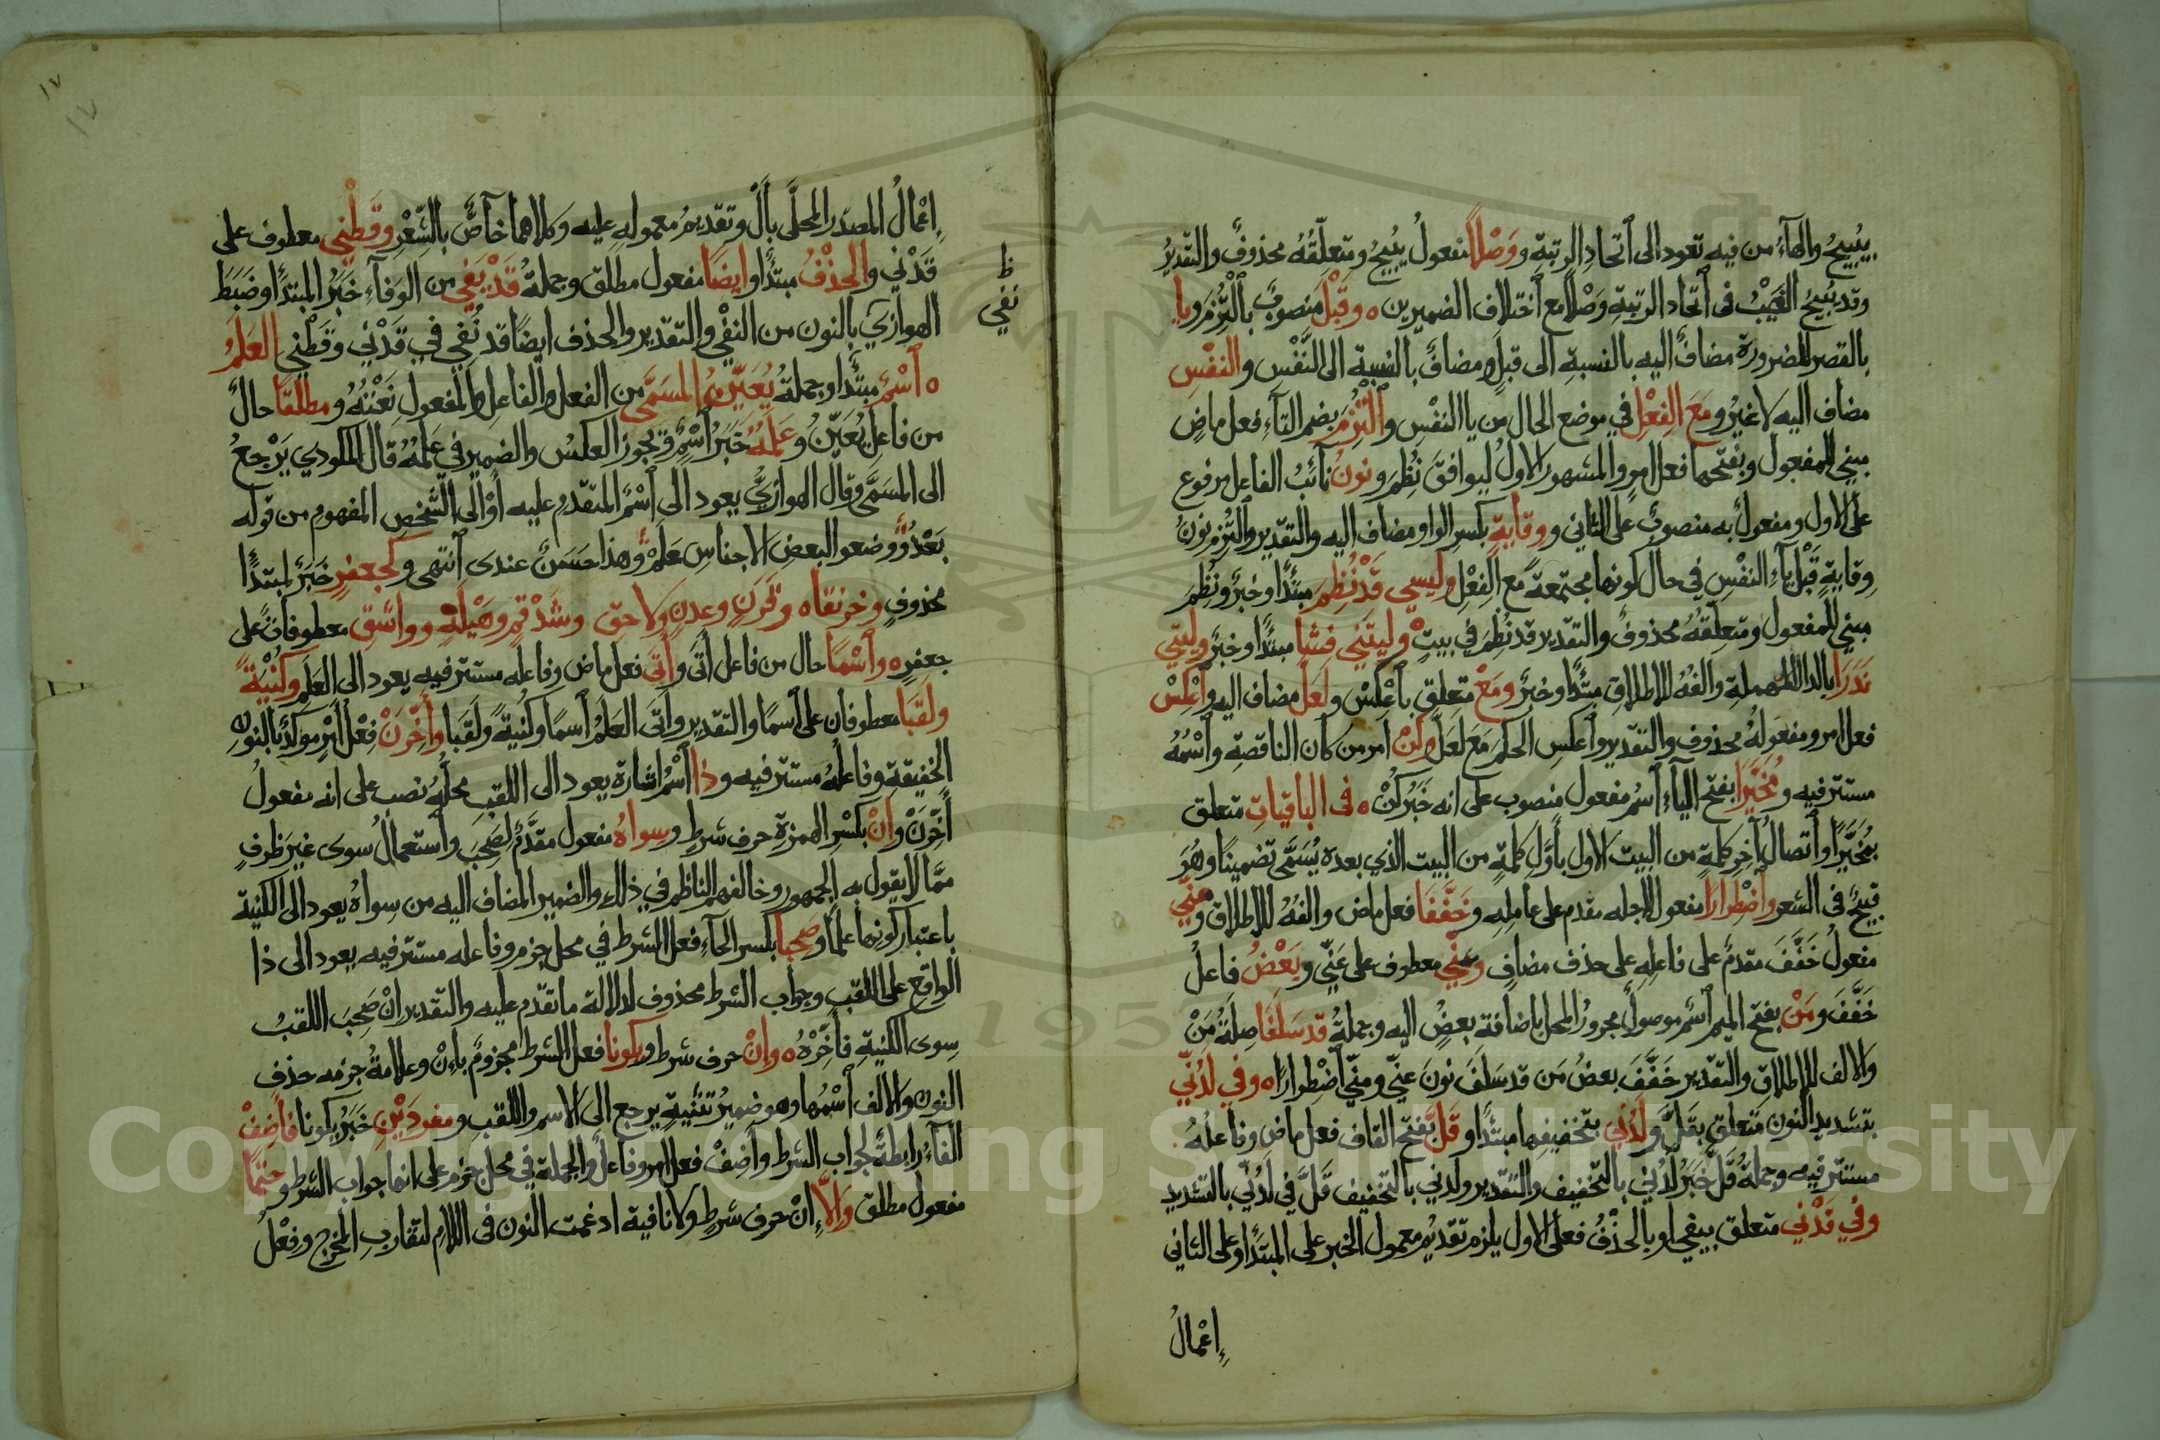 يُبِيحُ والهآءُ من فيه تعود الى ٱتحادِ الرتبةِ ووَصْلًا مفعولُ يُبِيحُ ومتعلِّقُهُ محذوفٌ والتقديرُ
وقد يُبيحُ الغَيْبُ فى ٱتحاد الرتبةِ وَصْلًا مع ٱختلاف الضميرين ٥ وقَبْلَ منصوبٌ بٱلْتُزِمَ ويا
بالقصر للضرورة مضافٌ اليه بالنسبةِ الى قبلَ ومضافٌ بالنسبة الى النَّفْس والنفْسِ
مضاف اليه لا غيرُ ومَعَ الفِعْلِ في موضع الحال من يا النفْسِ وٱلْتُزِمَ بضم التآءِ فعل ماضٍ
مبني للمفعول وبفتحها فعل امرٍ والمشهور الاول ليوافقَ نُظِمَ ونونُ نآئبُ الفاعل مرفوع
على الاول ومفعولٌ به منصوبٌ على الثاني ووِقايةٍ بكسر الواو مضاف اليه والتقدير وٱلتُزم نونُ
وِقايةٍ قَبْلَ يآءِ النفْسِ في حال كونها مجتمعةً مع الفِعْلِ وليسي قَدْ نُظِمَ مبتدًأ وخبرٌ ونُظِمَ
مبني للمفعول ومتعلِّقهُ محذوفٌ والتقدير قد نُظِمَ في بيتٍ وليتَني فشَا مبتدًأ وخبرٌ وليتي
نَدَرَا بالدال المهملة والفهُ للاطلاق مبتدًأ وخبرٌ ومَعْ متعلق بٱعْكِسْ ولَعلَّ مضاف اليه وٱعْكِسْ
فعل امر ومفعولهُ محذوف والتقدير وٱعكسِ الحكمَ مَعَ لَعَلَّ وكنْ امر من كان الناقصةِ وٱسْمُهُ
مستتر فيه ومُخَيَّرًا بفتح اليآءِ ٱسْمُ مفعول منصوب على انه خَبَرُ كُنْ ٥ فى الباقياتِ متعلق
بمُخَيَّرًا وٱتصالُ آخِرِ كلمةٍ من البيت الاول بأوّلِ كلمةٍ من البيت الذي بعده يُسَمَّى تضمينًا وهُوَ
قبيحٌ فى الشعر وٱضْطِرارًا مفعول لاجله مقدم على عامِلِه وخَفَّفَا فعل ماض والفهُ للاطلاق ومِنّي
مفعولُ خَفَّفَ مقدمٌ على فاعِلِه على حذف مضافٍ وعَنّي معطوف على عَنّي وبَعْضُ فاعلُ
خَفَّفَ ومَنْ بفتح الميم ٱسْم موصولٌ مجرورُ المحل باضافة بعضُ اليه وجملةُ قد سَلَفَا صِلَةُ مَنْ
والالف للاطلاق والتقدير خَفَّفَ بعضُ مَن قد سَلَفَ نونَ عنّي ومنّي ٱضْطِرارًا ٥ وفي لَدُنّي
بتشديد النون متعلق بقَلَّ ولَدُني بتخفيفها مبتدأ وقَلَّ بفتح القاف فعل ماض وفاعلهُ
مستتر فيه وجملةُ قَلَّ خَبَرُ لَدُني بالتخفيف والتقدير ولَدُني بالتخفيف قَلَّ في لَدُنّي بالتشديد
وفي قَدْني متعلق بيفي او بالحَذْفُ فعلى الاول يلزم تقديمُ معمول الخبر على المبتدأ وعلى الثاني
إِعْمالُ
١٧
١٧
إِعْمالُ المصدر المحلَّى بأَلْ وتقديمُ معمولهِ عليه وكلاهما خآصٌّ بالشّعْرِ وقَطْني معطوف على
قَدْني والحَذْفُ مبتدأ وايضًا مفعول مطلق وجملةُ قَدْ يَفِي من الوَفآءِ خَبَرُ المبتدأ وضَبَطَ
ظ
نفي
الهوّاريّ بالنون من النفْي والتقدير والحذف ايضًا قد نُفي في قَدْني وقَطْني العَلَمُ
٥ ٱسْمٌ مبتدأ وجملةُ يُعَيِّنُ المسَمَّى من الفعل والفاعل والمفعول نَعْتُهُ ومطلقًا حالٌ
من فاعل يُعَيِّنُ وعَلَمُهُ خَبَرُ ٱسْمٌ ويجوز العكسُ والضمير في عَلَمُهُ قال المكودي يَرْجعُ
الى المسَمَّى وقال الهوّاريُّ يعود الى ٱسْمٌ المتقدم عليه أوْ الى الشّخصِ المفهوم من قوله
بَعْدُ ووضعوا لبعضِ الاجناسِ عَلَمْ وهذا حَسَنٌ عندى ٱنتهى وكجعفرٍ خَبَرُ لمبتدًا
محذوفٍ وخرنقا ٥ وقَرَنٍ وعدنٍ ولاحقٍ وشَذْقمٍ وهَيْلةٍ وواشقِ معطوفاتٌ على
جعفرٍ ٥ وٱسْمًا حال من فاعل أَتَى وأَتَى فعل ماض وفاعله مستتر فيه يعود الى العَلَم وكُنْيَةً
ولقبًا معطوفان على ٱسمًا والتقدير وأَتَى العَلَمُ ٱسمًا وكُنيةً ولَقَبا وأَخِّرَنْ فِعْلُ أَمْرٍ مؤكدٌ بالنون
الخفيفة وفاعلُهُ مستتر فيه وذا ٱسْمُ اشارة يعود الى اللقبِ محلُّهُ نصب على انه مفعولُ
أَخِّرَنْ وإنْ بكسْرِ الهمزة حرف شرطٍ وسِواهُ مفعول مقدَّمٌ لِصَحِبَ وٱستعمالُ سوى غيرَ ظرفٍ
ممّا لا يقول به الجمهور وخالفهم الناظم في ذلك والضمير المضاف اليه من سِواهُ يعود الى الكنية
باعتبار كونها علمًا وصَحِبا بكسر الحآءِ فعل الشرط في محل جزم وفاعله مستتر فيه يعود الى ذا
الواقع على اللقبِ وجواب الشرط محذوف لدلالة ما تقدّم عليه والتقدير انْ صَحِبَ اللقبُ
سِوى الكنيةِ فأَخِّرْهُ ٥ وإنْ حرف شرط ويكونا فعل الشرط مجزومٌ بإنْ وعلامةُ جزمه حذف
النون والالف ٱسْمُها وهو ضميرُ تثنيةٍ يرجع الى الاسم واللقب ومفردَيْنِ خَبَرُ يكونا فأَضِفْ
الفآءُ رابطةٌ لجواب الشرط وأَضِفْ فعل امر وفاعلٌ والجملة في محل جزم على انها جواب الشرط وحتمًا
مفعول مطلق وَإلَّا إنْ حرف شرطٍ ولا نافية ادغمت النون فى اللام لتقاربِ المخرج وفِعْلُ